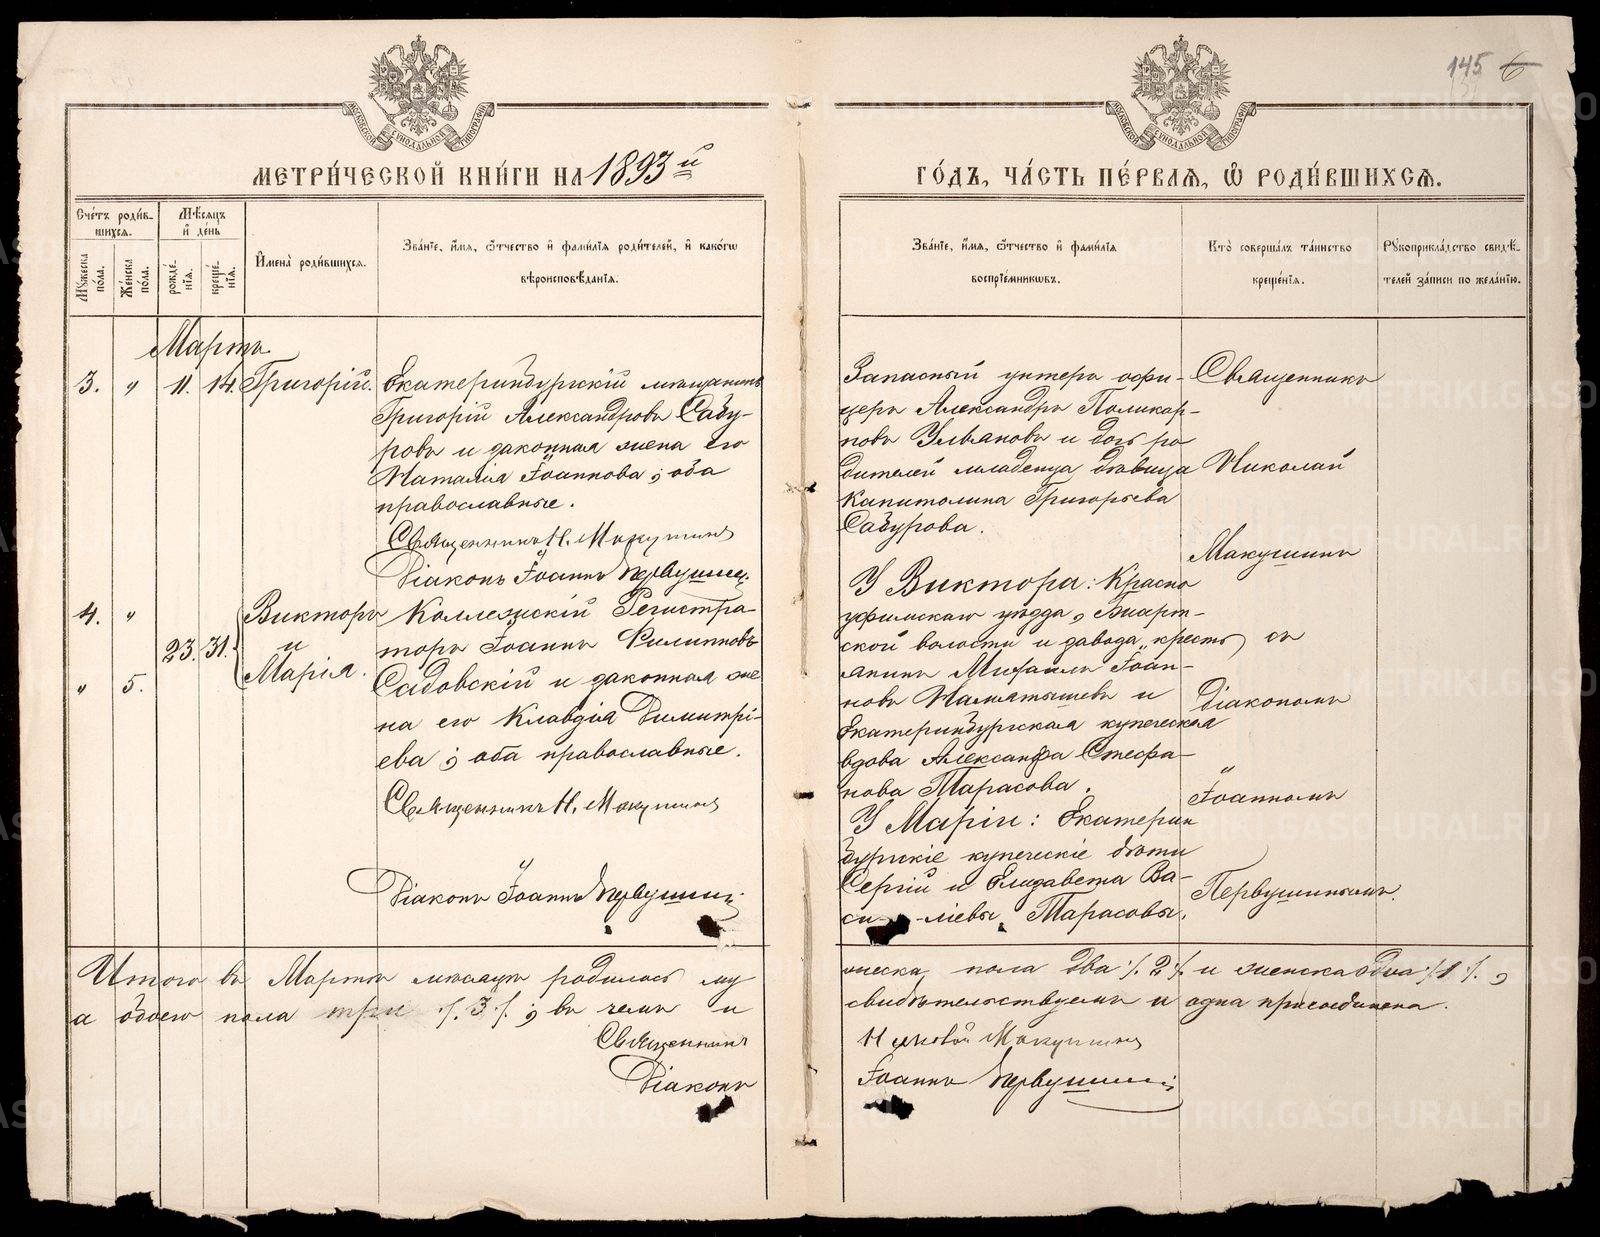 145 6
МЕТРИ́ЧЕСКОЙ КНИ́ГИ НА 1893 й
ГО́ДЪ, ЧА́СТЬ ПЕ́РВАЯ, Ѿ РОДИ́ВШИХСЯ.
Сче́тъ роди́в-
шихся.
Мꙋжеска
по́ла.
Же́нска
по́ла.
Мѣ́сяцъ
и҆ де́нь
рожде́-
нїя.
креще́-
нїя.
И҆мена̀ роди́вшихся.
Зва́нїе, и҆́мя, ѻ҆́тчество и҆ фами́лїя роди́телей, и҆ како́гѡ
вѣроисповѣ́данїя.
Зва́нїе, и҆́мя, ѻ҆́тчество и҆ фами́лїя
воспрїе́мникѡвъ.
Кто̀ соверша́лъ та́инство
креще́нїя.
Рꙋкоприкла́дство свидѣ́-
телей за́писи по жела́нїю.
Мартъ
3. " 11. 14. Григорій.
Екатеринбургскій мѣщанинъ
Григорій Александровъ Сабу-
ровъ и законная жена его
Наталія Іоаннова; оба
православные.
Священникъ Н. Макушинъ
Діаконъ Іоаннъ Первушинъ
Запасный унтеръ офи-
церъ Александръ Поликар-
повъ Ульяновъ и дочь ро
дителей младенца дѣвица
Капитолина Григорьева
Сабурова.
Священникъ
Николай
Макушинъ
4. "
23. 31.
" 5.
Викторъ
и
Марія.
Коллежскій Регистра-
торъ Іоаннъ Филипповъ
Садовскій и законная же
на его Клавдія Димитрі-
ева; оба православные.
Священникъ Н. Макушинъ
Діаконъ Іоаннъ Первушинъ
У Виктора: Красно
уфимскаго уѣзда, Бисерт-
ской волости и завода, кресть
янинъ Михаилъ Іоан-
новъ и
Екатеринбургская купеческая
вдова Александра Стефа-
нова Тарасова.
У Маріи: Екатерин
бургскіе купеческіе дѣти
Сергій и Елизавета Ва-
си-ліевы Тарасовы.
съ
Діакономъ
Іоанномъ
Первушинымъ.
Итого въ Мартѣ мѣсяцѣ родилось му
жеска пола два /.2/. и женска одна /.1/.,
а обоего пола три /.3/.; въ чемъ и
свидѣтельствуемъ и одна присоединена.
Священникъ Николай Макушинъ
Діаконъ Іоаннъ Первушинъ
METRIKI.GASO-URAL.RU